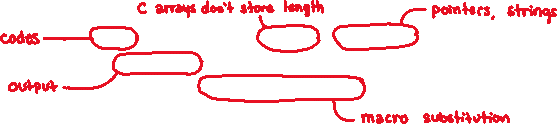 C arrays don't store length
pointers, strings
codes
output
macro substitution